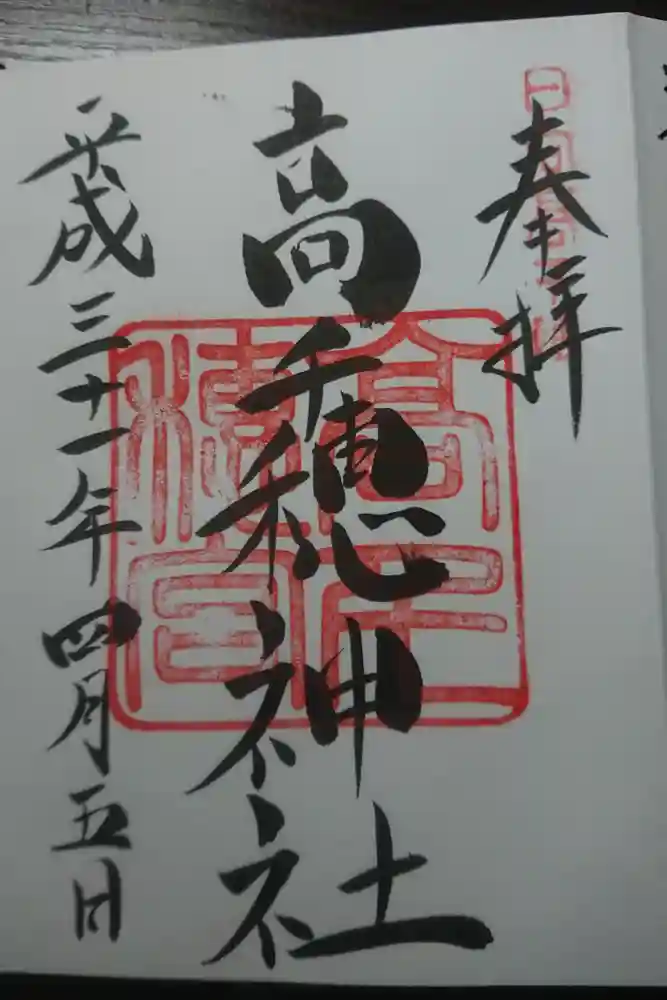 奉拝
高千穂神社
平成三十一年四月五日